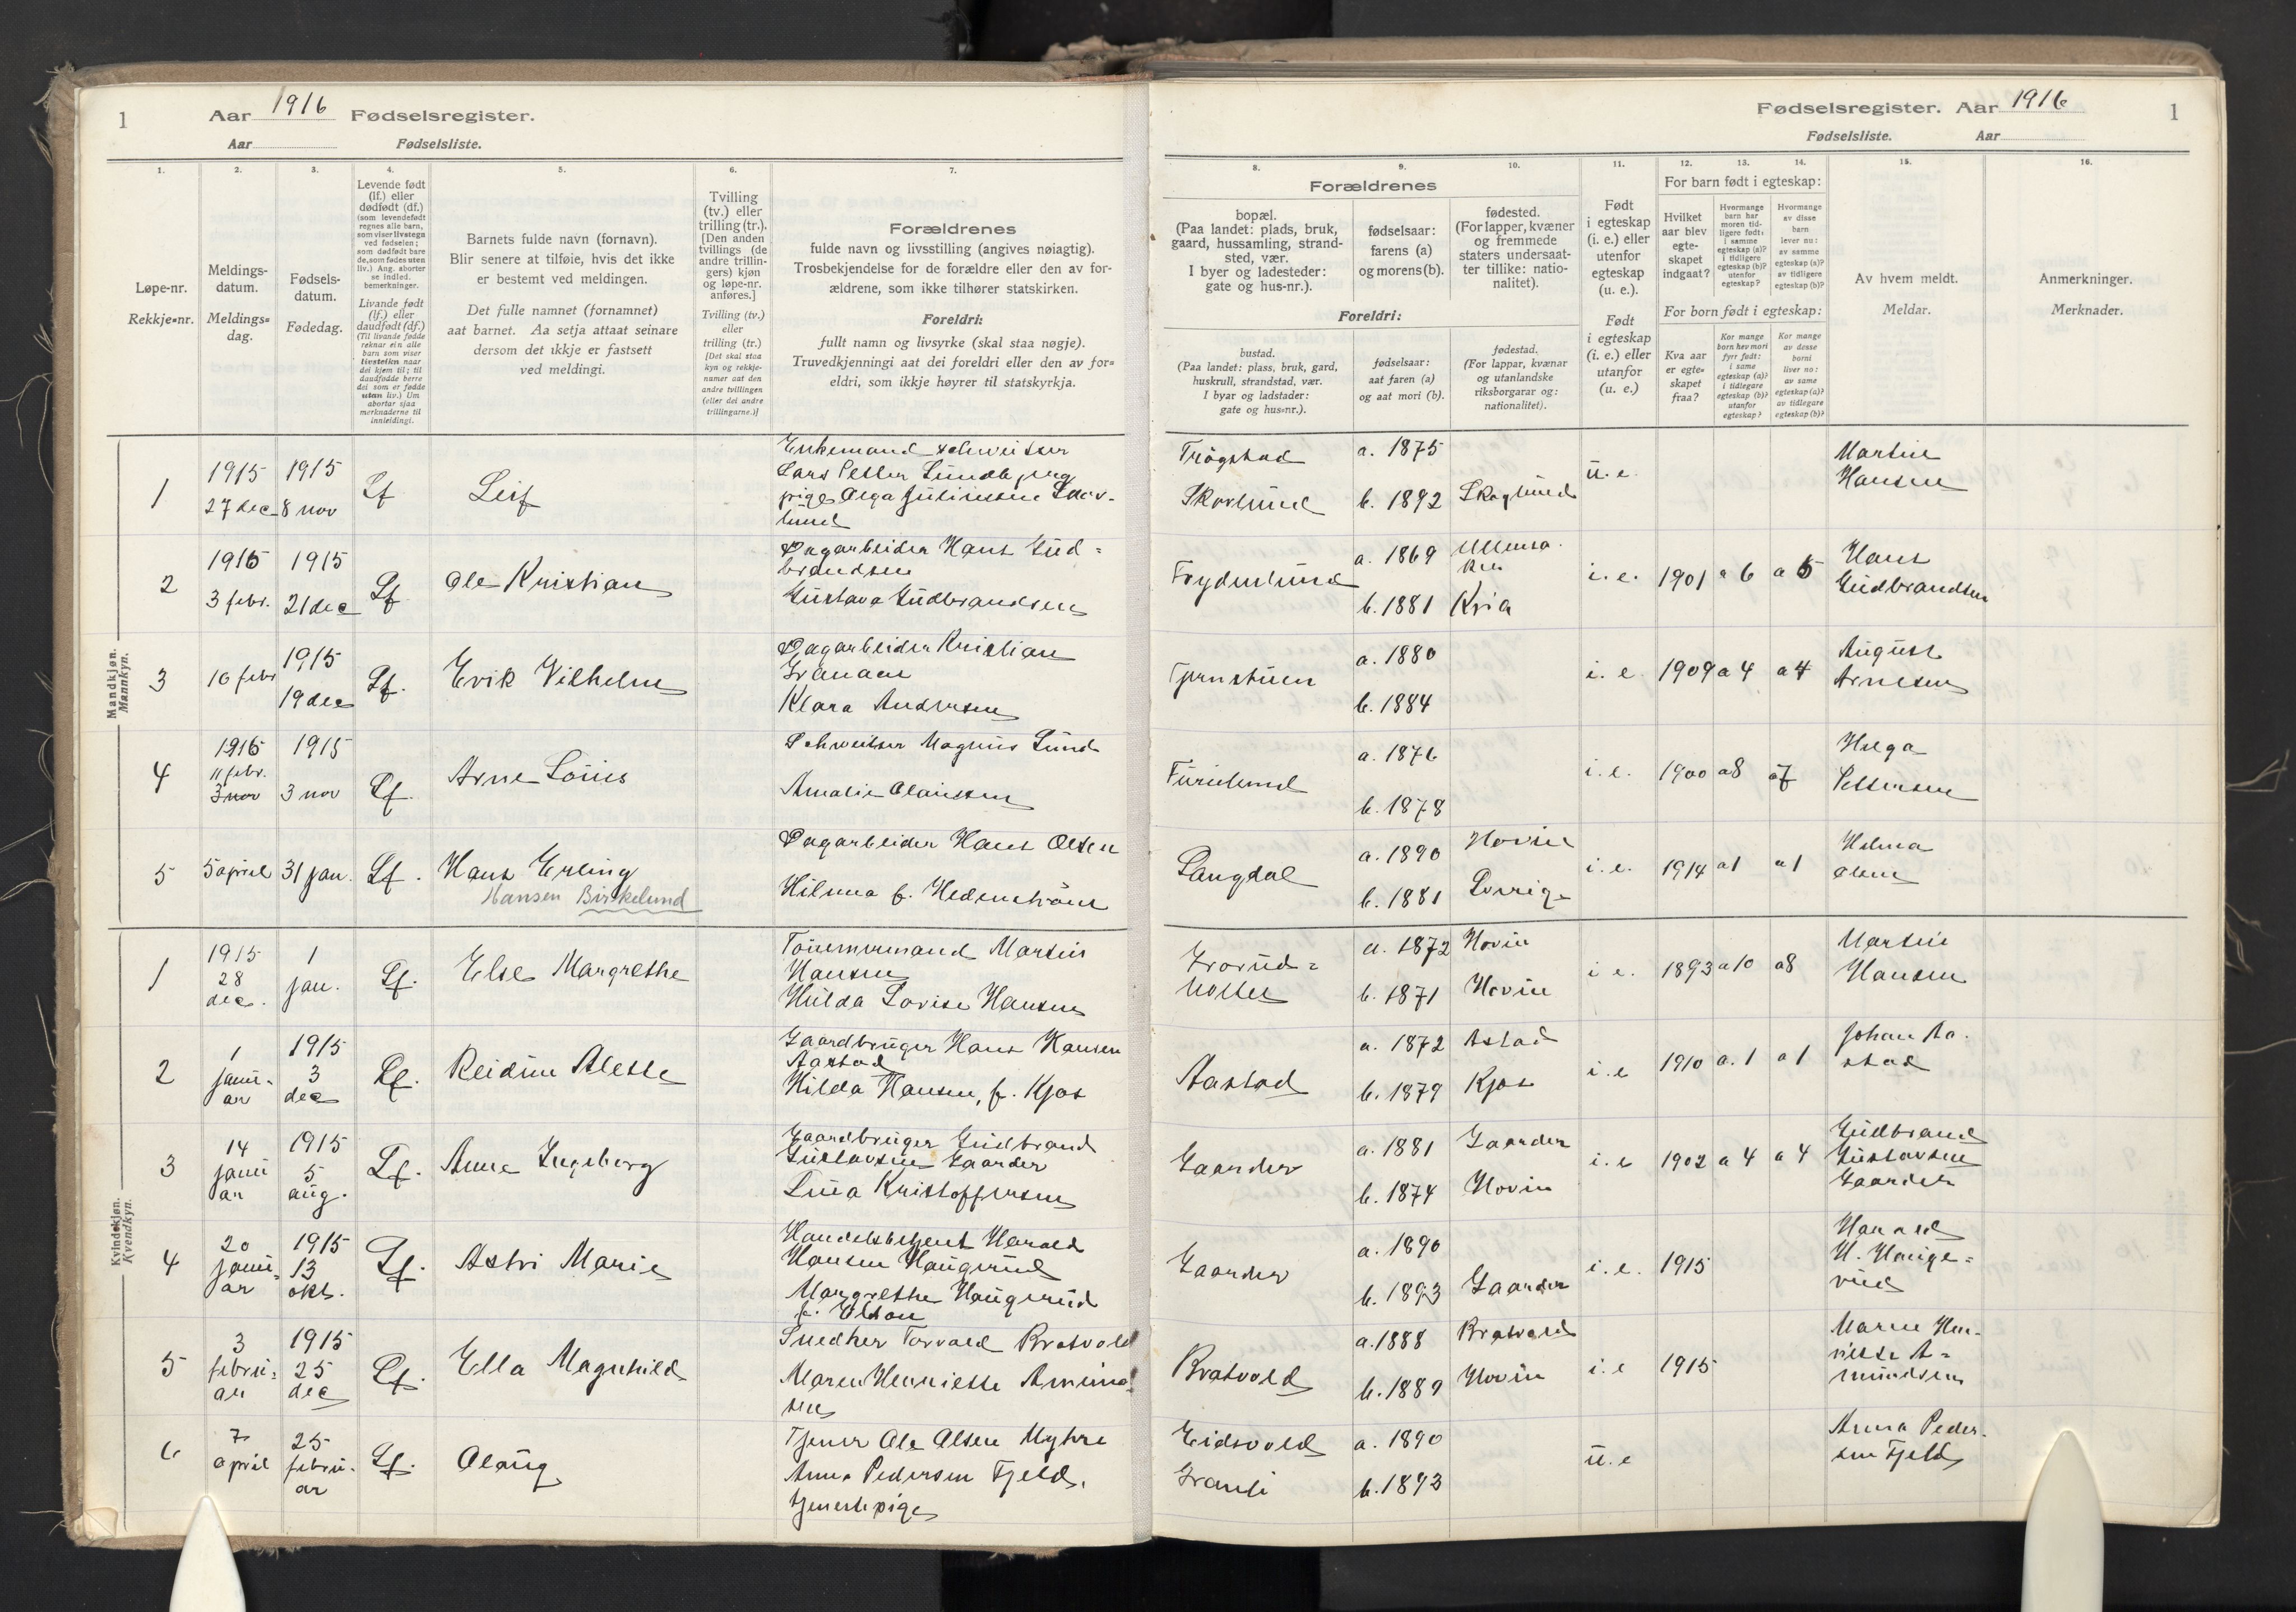 1
Aar 1916 Fødselsregister.
Aar Fødselsliste.
1.
Løpe-nr.
Rekkje-nr.
2.
Meldings-
datum.
Meldings-
dag.
3.
Fødsels-
datum.
Fødedag.
4.
Levende født
(lf.) eller
dødfødt (df.)
(som levendefødt
regnes alle barn,
som viser livstegn
ved fødselen;
som dødfødt bare
de, som fødes uten
liv.) Ang. aborter
se indled.
bemerkninger.
Livande født
(lf.) eller
daudfødt (df.)
(Til livande fødde
reknar ein alle
barn som viser
livsteikn naar
dei kjem til; til
daudfødde berre
dei som er fødde
utan liv.) Um
abortar sjaa
merknaderne til
innleidingi.
5.
Barnets fulde navn (fornavn).
Blir senere at tilføie, hvis det ikke
er bestemt ved meldingen.
Det fulle namnet (fornamnet)
aat barnet. Aa setja attaat seinare
dersom det ikkje er fastsett
ved meldingi.
6.
Tvilling
(tv.) eller
trilling (tr.).
[Den anden
tvillings (de
andre trillin-
gers) kjøn
og løpe-nr.
anføres.]
Tvilling (tv.)
eller
trilling (tr.)
[Det skal staa
kyn og rekkje-
numer aat den
andre tvillingen
(eller dei andre
trillingarne.)]
7.
Forældrenes
fulde navn og livsstilling (angives nøiagtig).
Trosbekjendelse for de forældre eller den av for-
ældrene, som ikke tilhører statskirken.
Foreldri:
fullt namn og livsyrke (skal staa nøgje).
Truvedkjenningi aat dei foreldri eller den av for-
eldri, som ikkje høyrer til statskyrkja.
Mandkjøn.
Mannkyn.
1
1915
27 dec
1915
8 nov
Lf
Leif
Enkemand schweitser
Lars Petter Lundbjerg
pige Olga Julinesen Skov-
lund
2
1916
3 febr.
1915
21 dec
Lf
Ole Kristian
Dagarbeider Hans Gud-
brandsen
Gustava Gudbrandsen
3
10 febr
1915
19 dec
Lf.
Erik Vilhelm
Dagarbeider Kristian
Granaas
Klara Andersen
4
1916
11 febr.
3 nov
1915
3 nov
Lf.
Arne Louis
Schweitser Magnus Lund
Amalie Olaussen
5
5 april
31 jan.
Lf.
Hans Erling
Hansen Birkelund
Dagarbeider Hans Olsen
Hilma f. Hedenstrøm
Kvindekjøn.
Kvendkyn.
1
1915
28
dec.
1
jan.
Lf.
Else Margrethe
Tømmermand Martin
Hansen
Hulda Lovise Hansen
2
1
janu-
ar
1915
3
dec
Lf.
Reidun Alette
Gaardbruger Hans Hansen
Aastad
Hilda Hansen, f. Kjos
3
14
janu
ar
1915
5
aug.
Lf.
Anne Ingeborg
Gaardbruger Gudbrand
Gustavsen Gaarder
Lina Kristoffersen
4
20
janu-
ar
1915
13
okt.
Lf.
Astri Marie
Handelsbetjent Harald
Hansen Haugerud
Margrethe Haugerud
f. Olson
5
3
febru-
ar
1915
25
dec
Lf.
Ella Magnhild
Snedker Torvald Bratvold
Maren Henriette Amund
sen
6
7
april
25
febru-
ar
Lf.
Olaug
Tjener Ole Olsen Myhre
Anna Pedersen Fjeld,
tjenestepige
Fødselsregister. Aar 1916
1
Fødselsliste. Aar
8.
Forældrenes
bopæl.
(Paa landet: plads, bruk,
gaard, hussamling, strand-
sted, vær.
I byer og ladesteder:
gate og hus-nr.).
Foreldri:
bustad.
(Paa landet: plass, bruk, gard,
huskrull, strandstad, vær.
I byar og ladstader:
gate og hus-nr.).
9.
fødselsaar:
farens (a)
og morens (b).
fødselsaar:
aat faren (a)
og aat mori (b).
10.
fødested.
(For lapper, kvæner
og fremmede
staters undersaat-
ter tillike: natio-
nalitet).
fødestad.
(For lappar, kvænar
og utanlandske
riksborgarar og:
nationalitet).
11.
Født
i egteskap
(i. e.) eller
utenfor
egteskap
(u. e.).
Født
i egteskap
(i. e.) eller
utanfor
(u. e.)
12.
13.
14.
For barn født i egteskap:
Hvilket
aar blev
egte-
skapet
indgaat?
Hvormange
barn har
moren tid-
ligere født:
i samme
egteskap (a)?
i tidligere
egteskap (b)?
utenfor
egteskap?
Hvormange
av disse
barn
lever nu:
av samme
egteskap (a)?
av tidligere
egteskap (b)?
For born født i egteskap:
Kva aar
er egte-
skapet
fraa?
Kor mange
born hev mori
fyrr født:
i same
egteskap (a)?
i tidlegare
egteskap (b)?
utanfor
egteskap?
Kor mange
av desse
borni
liver no:
av same
egteskap (a)?
av tidlegare
egteskap (b)?
15.
Av hvem meldt.
Meldar.
16.
Anmerkninger.
Merknader.
Trøgstad
Skovlund
a. 1875
b. 1892
Skoglund
u. e.
Martin
Hansen
Frydenlund
a. 1869
b. 1881
Ullensa-
ker
Kria
i. e.
1901
a 6
a 5
Hans
Gudbrandsen
Tjernstuen
a. 1880
b. 1884
i. e.
1909
a 4
a 4
August
Arnesen
Furulund
a. 1876
b. 1878
i. e.
1900
a 8
a 7
Helga
Pettersen
Langdal
a. 1890
b. 1881
Hovin
Sverige
i. e.
1914
a 1
a 1
Hilma
Olsen
Grorud-
holtet
a. 1872
b. 1871
Hovin
Hovin
i e.
1893
a 10
a 8
Martin
Hansen
Aastad
a. 1872
b. 1879
Astad
Kjos
i. e
1910
a. 1
a 1
Johan Aa-
stad
Gaarder
a. 1881
b. 1874
Gaarder
Hovin
i. e
1902
a 4
a 4
Gudbrand
Gustavsen
Gaarder
Gaarder
a. 1890
b. 1893
Gaarder
i. e.
1915
Harald
H. Hauge-
rud
Bratvold
a. 1888
b. 1889
Bratvold
Hovin
i. e
1915
Maren Hen-
riette A-
mundsen
Eidsvold
Granli
a. 1890
b. 1893
u. e
Anna Peder-
sen Fjeld